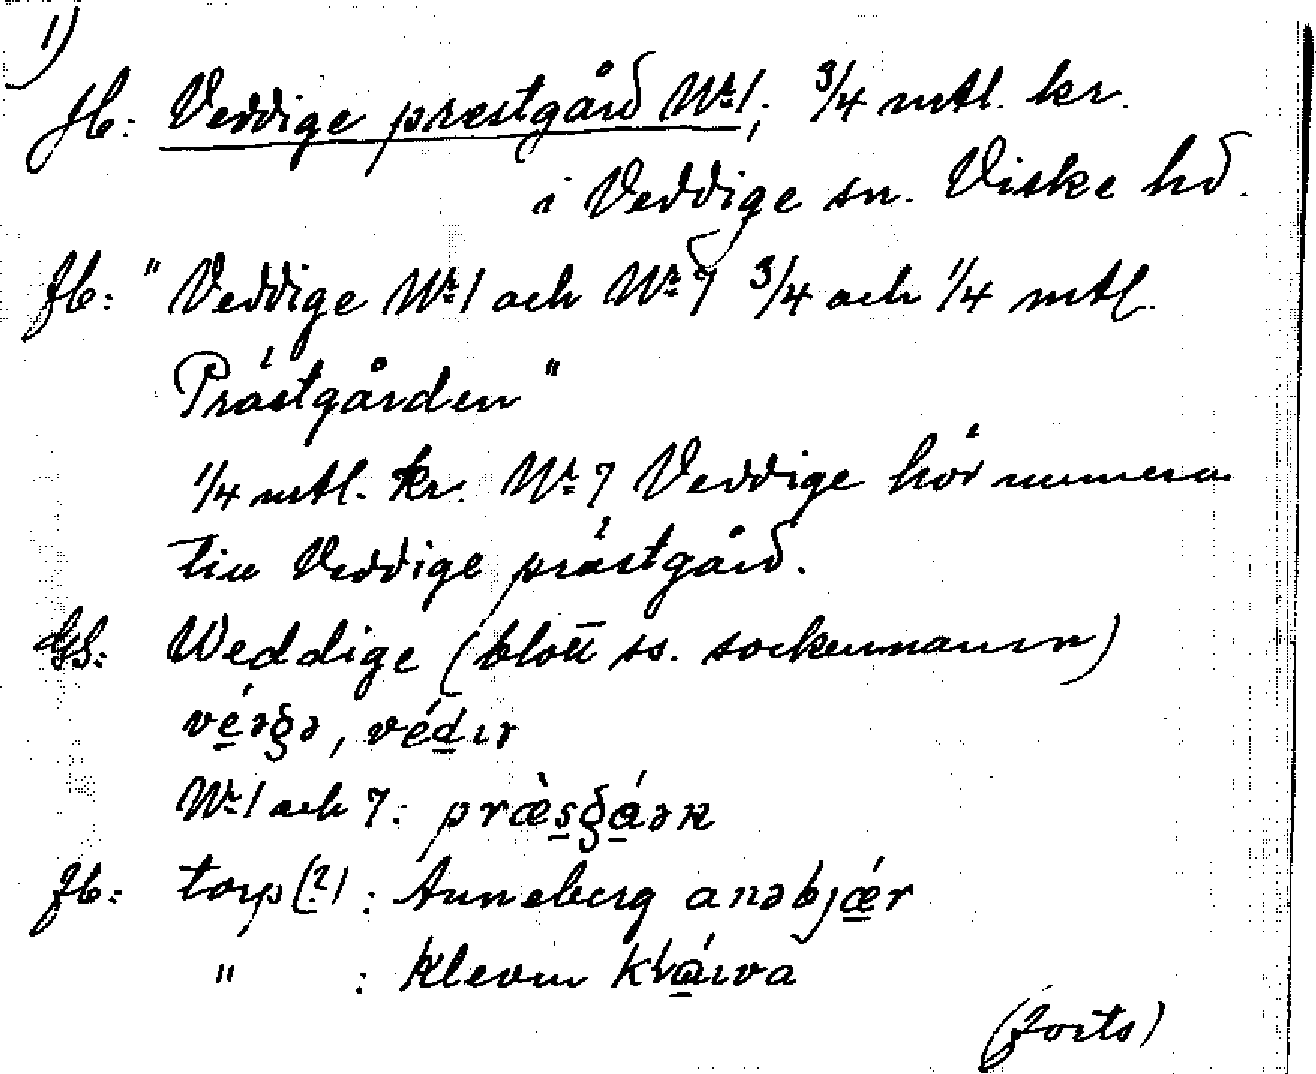 1)
Jb: Veddige præstgård Nr 1; 3/4 mtl. kr.
i Veddige sn. Viske hd.
Jb: "Veddige Nr 1 och Nr 7 3/4 och 1/4 mtl.
Prästgården"
1/4 mtl. kr. Nr 7 Veddige hör numera
till Veddige prästgård.
GS: Weddige (blott ss. sockennamn)
Nr 1 och 7:
Jb: torp(?) : Anneberg anəbjǽr
" : Kleven
(forts)